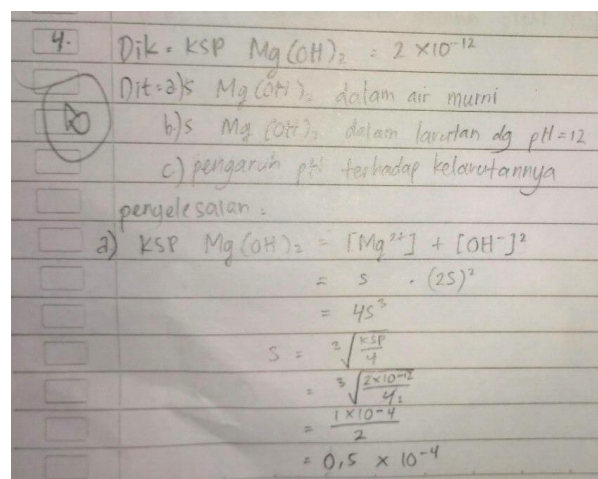 4. Dik = KSP Mg(OH)₂ = 2 × 10⁻¹²
Dit = a) s Mg(OH)₂ dalam air murni
b) s Mg(OH)₂ dalam larutan dg pH = 12
c) pengaruh pH terhadap kelarutannya
penyelesaian =
a) KSP Mg(OH)₂ = [Mg²⁺] + [OH⁻]²
= s . (2s)²
= 4s³
s = ²√(KSP/4)
= ³√(2×10⁻¹²/4)
= 1×10⁻⁴/2
= 0,5 × 10⁻⁴